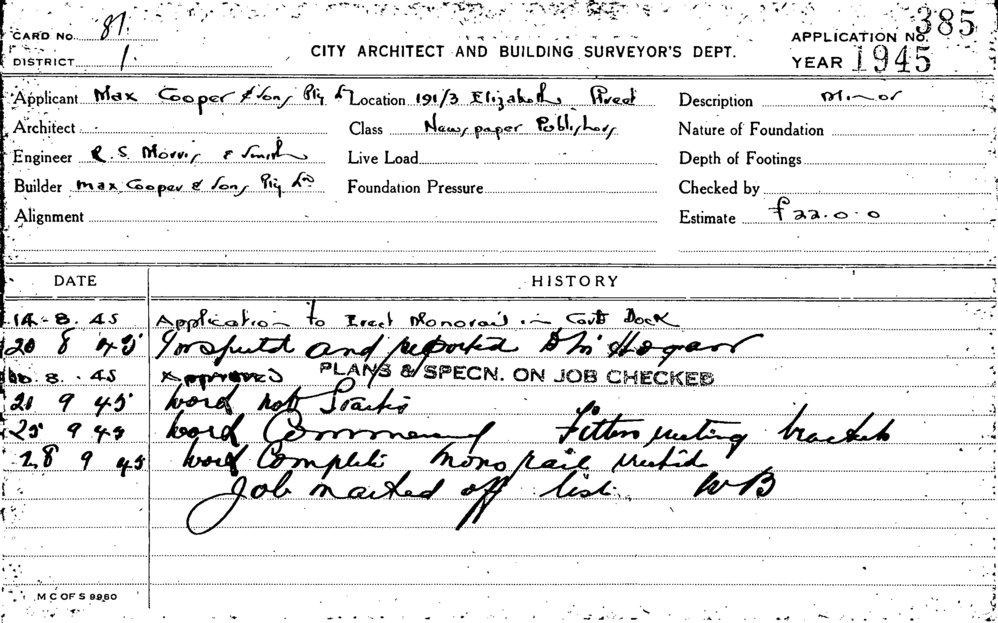 CARD No. 87.
APPLICATION No. 385
CITY ARCHITECT AND BUILDING SURVEYOR'S DEPT.
DISTRICT 1.
YEAR 1945
Applicant Max Cooper & Sons Pty Ld Location 191/3 Elizabeth Street Description Minor
Architect Class Newspaper Publishers Nature of Foundation
Engineer R. S. Morris & Smith Live Load Depth of Footings
Builder Max Cooper & Sons Pty Ld Foundation Pressure Checked by
Alignment Estimate £22.0.0
DATE HISTORY
14-8.45 Application to Erect Monorail in Dock
20 8 45 Inspected and reported
8.45 Approved PLANS & SPECN. ON JOB CHECKED
21 9 45 Work not Started
25 9 45 Work Commenced Fitters erecting brackets
28 9 45 Work Complete Monorail erected
Job marked off list WB
M C OF S 9960